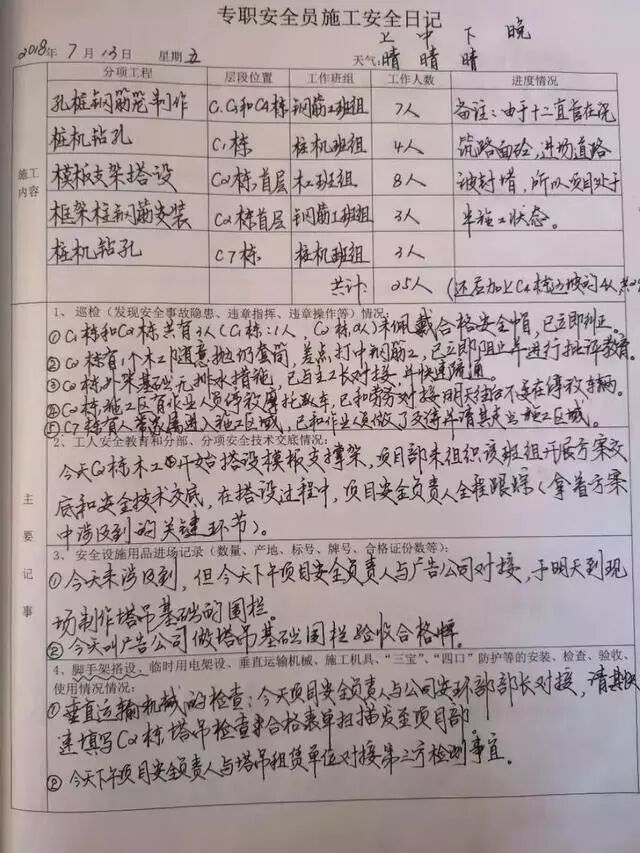 专职安全员施工安全日记
上 中 下 晚
2018年 7 月 13 日 星期五 天气: 晴 晴 晴
分项工程 层段位置 工作班组 工作人数 进度情况
施工内容
孔桩钢筋笼制作 C1 栋 钢筋工班组 7人 备注:由于十二直管在浇
桩机钻孔 C1栋 桩机班组 4人 筑路面砼,进场道路
模板支架搭设 C2栋首层 木工班组 8人 被封堵,所以项目处于
框架柱钢筋安装 C2栋首层 钢筋工班组 3人 半施工状态。
桩机钻孔 C7栋 桩机班组 3人
共计: 25人
主要记事
1、巡检(发现安全事故隐患、违章指挥、违章操作等)情况:
① C1栋和C2栋共有3人(C1栋:1人,C2栋2人)未佩戴合格安全帽,已立即纠正。
② C2栋有1个木工随意抛扔套筒,差点打中钢筋工,已立即阻止并进行批评教育。
③ C2栋外架基础无排水措施,已与主工长对接,并快速疏通。
④ C2栋施工区有作业人员停放摩托车,已和劳务对接明天往后不要在停放车辆。
⑤ C7栋有人带家属进入施工区域,已和作业人员做了交待并请其走出施工区域。
2、工人安全教育和分部、分项安全技术交底情况:
今天C2栋木工开始搭设模板支撑架,项目部未组织该班组开展方案交
底和安全技术交底,在搭设过程中,项目安全负责人全程跟踪(拿着方案
中涉及到的关键环节)。
3、安全设施用品进场记录(数量、产地、标号、牌号、合格证份数等):
① 今天未涉及到,但今天下午项目安全负责人与广告公司对接,于明天到现
场制作塔吊基础的围栏。
② 今天叫广告公司做塔吊基础围栏验收合格牌。
4、脚手架搭设、临时用电架设、垂直运输机械、施工机具、“三宝”、“四口”防护等的安装、检查、验收、
使用情况情况:
① 垂直运输机械的检查:今天项目安全负责人与公司安环部部长对接,请其快
速填写C2栋塔吊检查合格表单扫描发至项目部。
② 今天下午项目安全负责人与塔吊租赁单位对接第三方检测事宜。